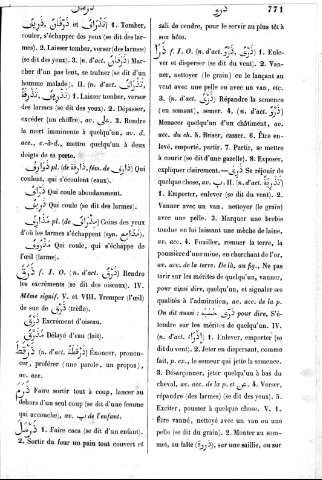 ذرو
771
ذَرَفَانٌ et تَذْرَافٌ) 1. Tomber,
couler, s'échapper des yeux (se dit des lar-
mes). 2. Laisser tomber, verser (des larmes)
(se dit des yeux). 3. (n. d'act. ذَرَفَانٌ) Mar-
cher d'un pas lent, se traîner (se dit d'un
homme malade). II. (n. d'act. تَذْرِيفٌ,
تَذْرِفَةٌ) 1. Laisser tomber, verser
des larmes (se dit des yeux). 2. Dépasser,
excéder (un chiffre), av. على. 3. Rendre
la mort imminente à quelqu'un, av. d.
acc., c.-à-d., mettre quelqu'un à deux
doigts de sa perte.
ذَوَارِفُ pl. (de ذارف, fém. de ذارفة) Qui
coulent, qui s'écoulent (eaux).
Qui coule abondamment.
ذَرِيفٌ Qui coule (se dit des larmes).
مَذَارِفُ pl. (de مَذْرَفٌ) Coins des yeux
d'où les larmes s'échappent (syn. مدامع).
مَذْرُوفٌ Qui coule, qui s'échappe de
l'œil (larme).
ذَرَقَ f. I. O. (n. d'act. ذَرْقٌ) Rendre
les excréments (se dit des oiseaux). IV.
Même signif. V. et VIII. Tremper (l'œil)
de suc de ذُرَق (trèfle).
ذَرْقٌ Excrément d'oiseau.
مُذَرَّقٌ Délayé d'eau (lait).
ذَرْقَطَ (n. d'act. ذَرْقَطَةٌ) Énoncer, pronon-
cer, proférer (une parole, un propos),
av. acc.
ذَرَمَ Faire sortir tout à coup, lancer au
dehors d'un seul coup (se dit d'une femme
qui accouche), av. ب de l'enfant.
ذَرْمَلَ 1. Faire caca (se dit d'un enfant).
2. Sortir du four un pain tout couvert et
sali de cendre, pour le servir au plus tôt à
son hôte.
ذَرَا f. I. O. (n. d'act. ذَرْوٌ, ذَرْيٌ) 1. Enle-
ver et disperser (se dit du vent). 2. Van-
ner, nettoyer (le grain) en le lançant au
vent avec une pelle ou avec un van, etc.
3. (n. d'act. ذَرْوٌ) Répandre la semence
(en semant), semer. 4. (n. d'act. ذَرْوٌ)
Menacer quelqu'un d'un châtiment, av.
acc. du ch. 5. Briser, casser. 6. Être en-
levé, emporté, partir. 7. Partir, se mettre
à courir (se dit d'une gazelle). 8. Exposer,
expliquer clairement. — ذَرِيَ Se réjouir de
quelque chose, av. ب. II. (n. d'act. تَذْرِيَةٌ)
1. Emporter, enlever (se dit du vent). 2.
Vanner avec un van, nettoyer (le grain)
avec une pelle. 3. Marquer une brebis
tondue en lui laissant une mèche de laine,
av. acc. 4. Fouiller, remuer la terre, la
poussière d'une mine, en cherchant de l'or,
av. acc. de la terre. De là, au fig., Ne pas
tarir sur les mérites de quelqu'un, vanner,
pour ainsi dire, quelqu'un, et signaler ses
qualités à l'admiration, av. acc. de la p.
On dit aussi : ذَرَّى حَسَبَهُ pour dire, S'é-
tendre sur les mérites de quelqu'un. IV.
(n. d'act. إِذْرَاءٌ) 1. Enlever, emporter (se
dit du vent). 2. Jeter en dispersant, comme
fait, p. ex., le semeur qui jette la semence.
3. Désarçonner, jeter quelqu'un à bas du
cheval, av. acc. de la p. et عن. 4. Verser,
répandre (des larmes) (se dit des yeux). 5.
Exciter, pousser à quelque chose. V. 1.
Être vanné, nettoyé avec un van ou une
pelle (se dit du grain). 2. Monter au som-
met, au faîte (ذروة), sur une saillie, ou sur